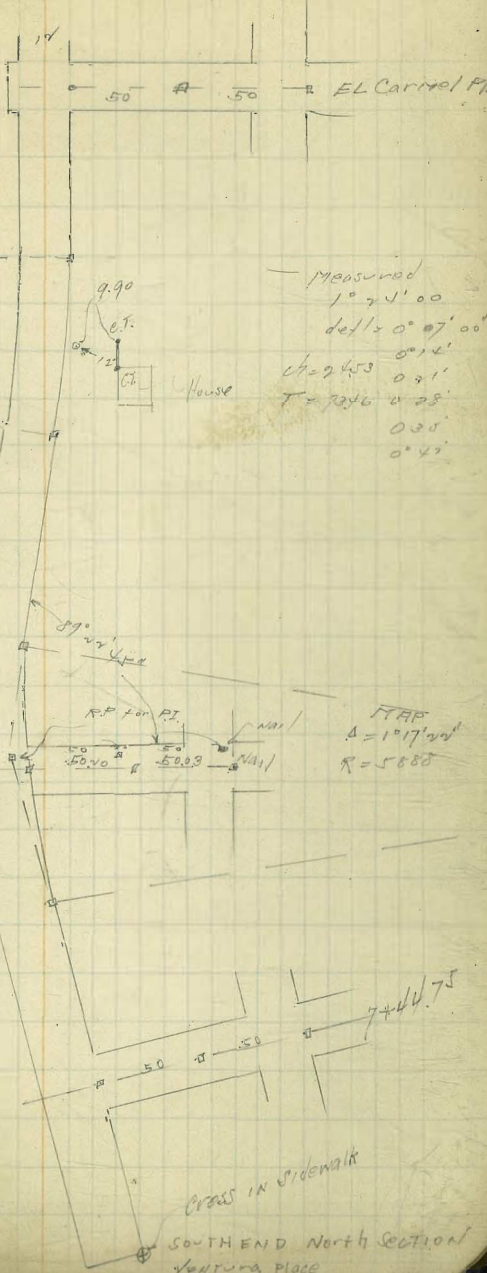 12
50 50 EL Carmel Pl
9.90
C.T.
12
House
Measured
1° 24' 00
defl = 0° 07' 00"
0° 14'
ch = 24.53 0 21'
0 28'
0 35'
0° 42'
89° 22'
R.P for P.I.
Nail
50 50
50.20 50.03 Nail
MAP
Δ = 1° 17' 22"
R = 5888
7+44.75
50 50
Cross IN Sidewalk
SOUTH END North SECTION
Ventura Place